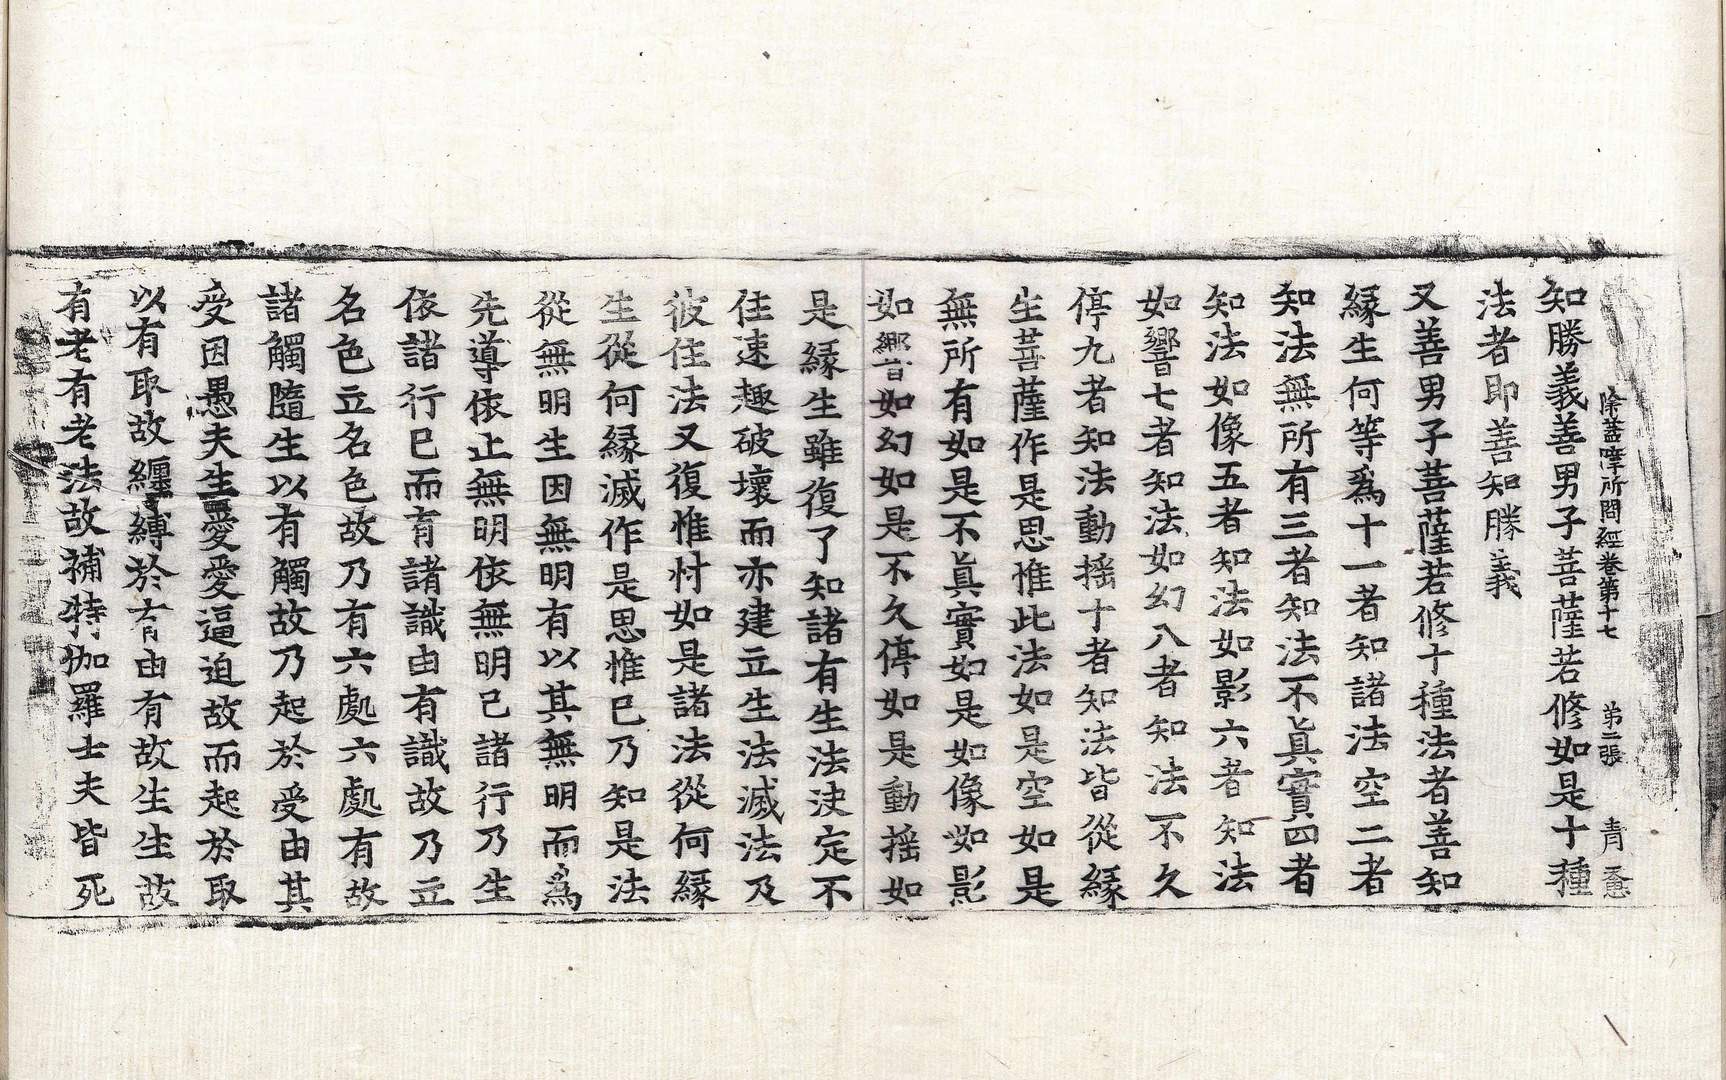 除蓋障所問經卷第十七 第二張 青
知勝義善男子菩薩若修如是十種
法者即善知勝義
又善男子菩薩若修十種法者善知
緣生何等爲十一者知諸法空二者
知法無所有三者知法不眞實四者
知法如像五者知法如影六者知法
如響七者知法如幻八者知法不久
停九者知法動搖十者知法皆從緣
生菩薩作是思惟此法如是空如是
無所有如是不眞實如是如像如影
如響如幻如是不久停如是動搖如
是緣生雖復了知諸有生法決定不
住速趣破壞而亦建立生法滅法及
彼住法又復惟忖如是諸法從何緣
生從何緣滅作是思惟已乃知是法
從無明生因無明有以其無明而爲
先導依止無明依無明已諸行乃生
依諸行已而有諸識由有識故乃立
名色立名色故乃有六處六處有故
諸觸隨生以有觸故乃起於受由其
受因愚夫生愛愛逼迫故而起於取
以有取故纏縛於有由有故生生故
有老有老法故補特伽羅士夫皆死